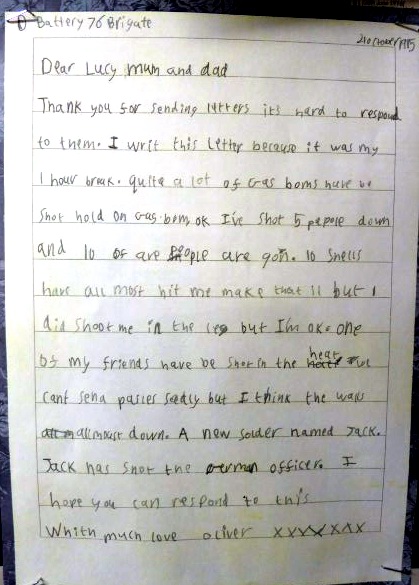 D Battery 76 Brigate
21 October 1915
Dear Lucy mum and dad
Thank you for sending letters its hard to respond
to them. I writ this letter because it was my
1 hour break. quite a lot of Gas boms have be
shot hold on Gas bom, ok I've shot 5 pepole down
and 10 of are people are gon. 10 shells
have all most hit me make that 11 but 1
did shoot me in the leg but I'm ok. one
of my friends have be shot in the heat
cant send pasles seedly but I think the wars
allmoust down. A new solder named Jack.
Jack has shot the German officer. I
hope you can respond to this
Whith much love oliver xxxxxxx